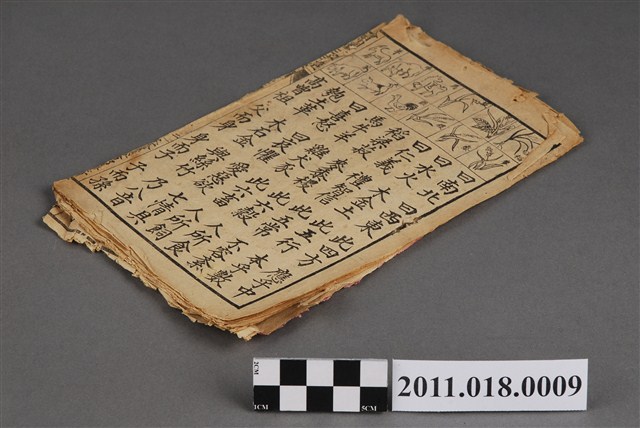 曰南北 曰西東 此四方 應乎中
曰水火 木金土 此五行 本乎數
曰仁義 禮智信 此五常 不容紊
稻粱菽 麥黍稷 此六穀 人所食
馬牛羊 雞犬豕 此六畜 人所飼
曰喜怒 曰哀懼 愛惡慾 七情具
匏土革 木石金 與絲竹 乃八音
高曾祖 父而身 身而子 子而孫
2CM
1CM
5CM
2011.018.0009